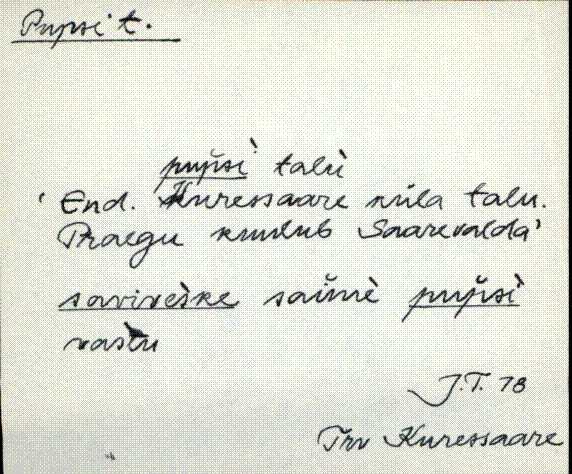 Pupsi t.
pup̆sì̬ talù
'End. Kuressaare küla talu.
Praegu kuulub Saarevalda'
saviveske saimè pupsì
vastu
J.T. 78
Trv Kuressaare